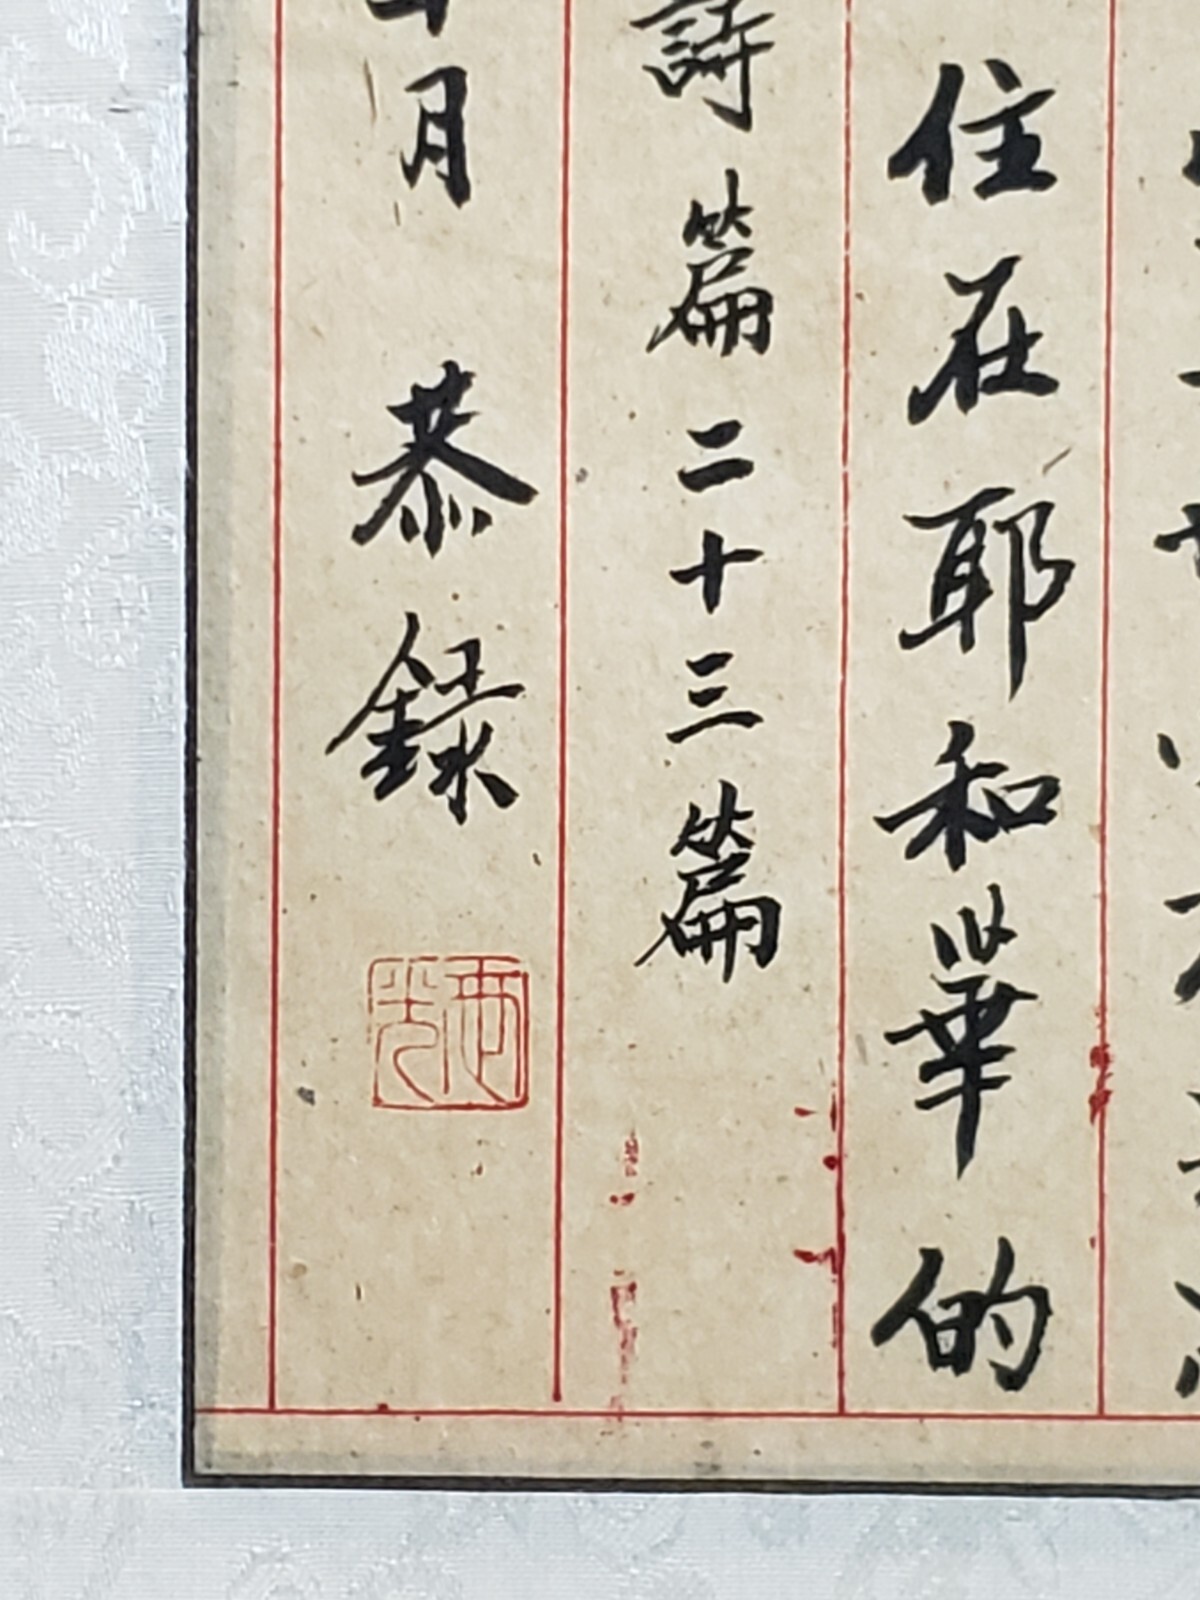 住在耶和華的
詩篇二十三篇
年月 恭錄